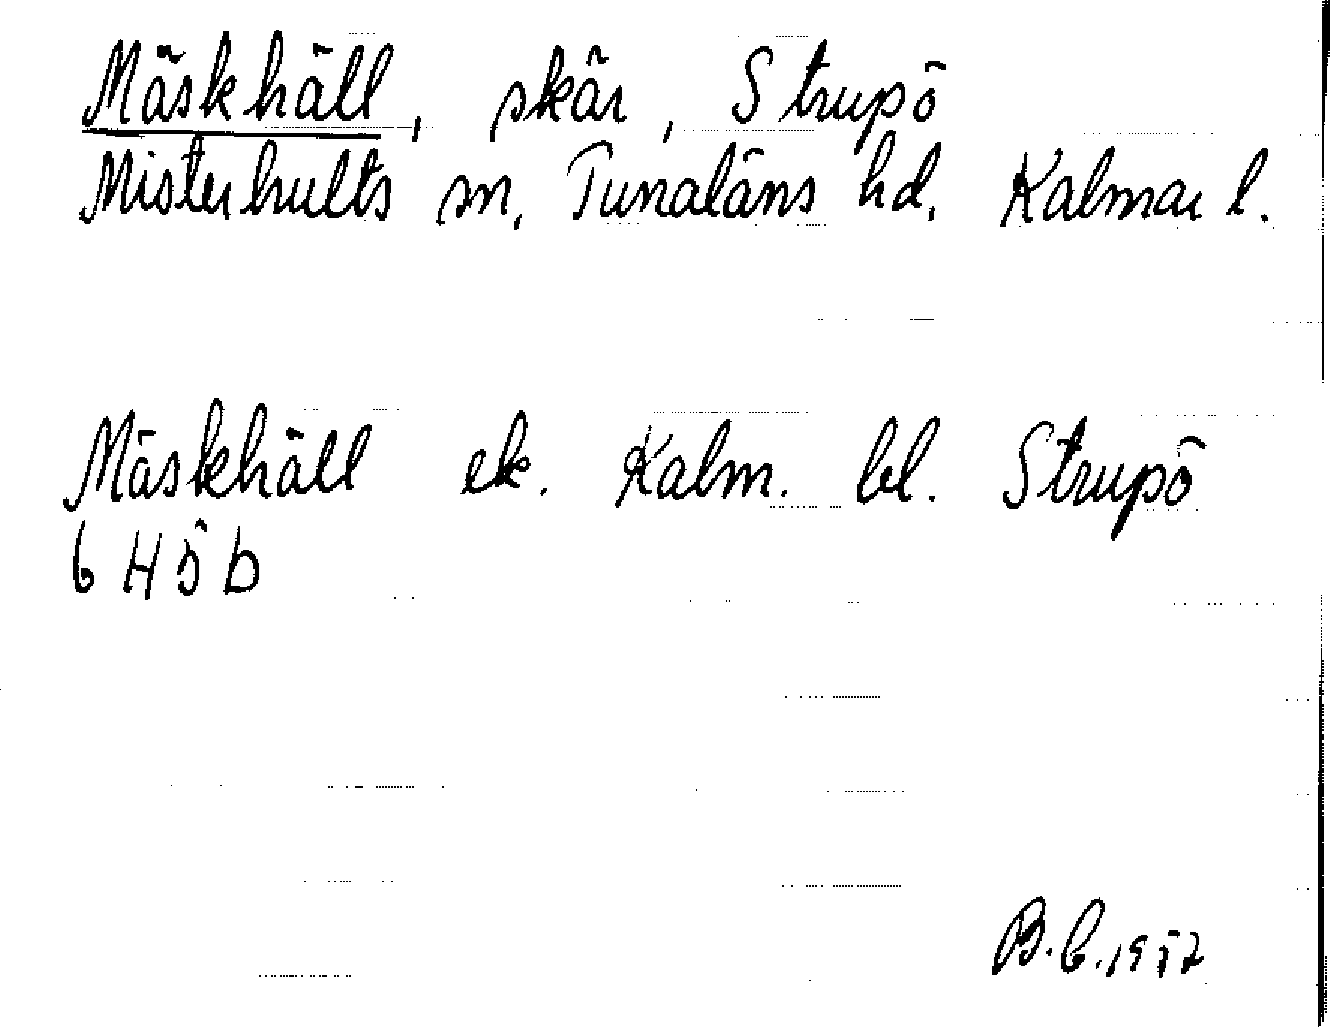 Mäskhäll, skär, Strupö
Misterhults sn, Tunaläns hd, Kalmar l.
Mäskhäll ek. Kalm. bl. Strupö
6 H 5 b
B.C. 1952